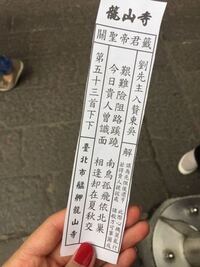 龍山寺
關聖帝君籤
劉先主入贅東吳
艱難險阻路蹊蹺
南鳥孤飛依北巢
今日貴人曾識面
相逢却在夏秋交
解
第五十三首下下
臺北市艋舺龍山寺